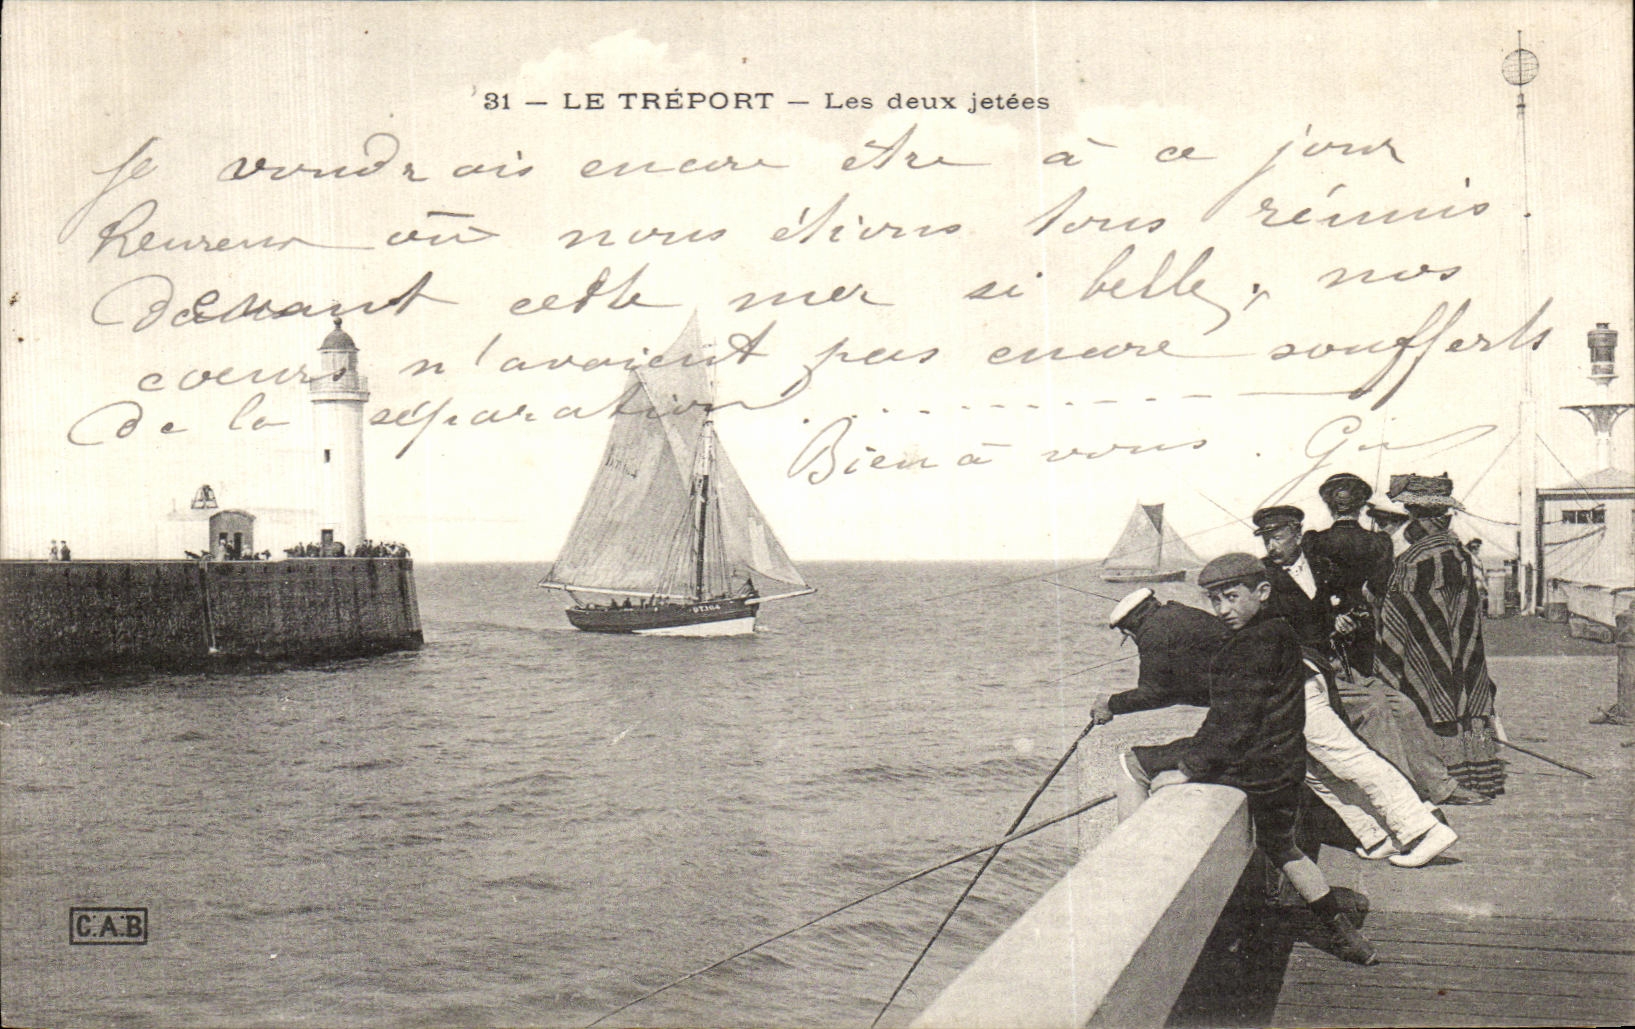 31 — LE TRÉPORT — Les deux jetées
Je voudrais encore être à ce jour
heureux où nous étions tous réunis
devant cette mer si belle, nos
coeurs n'avaient pas encore soufferts
de la séparation . . . . . . . . . . .
Bien à vous. Gin
DT.164
C.A.B